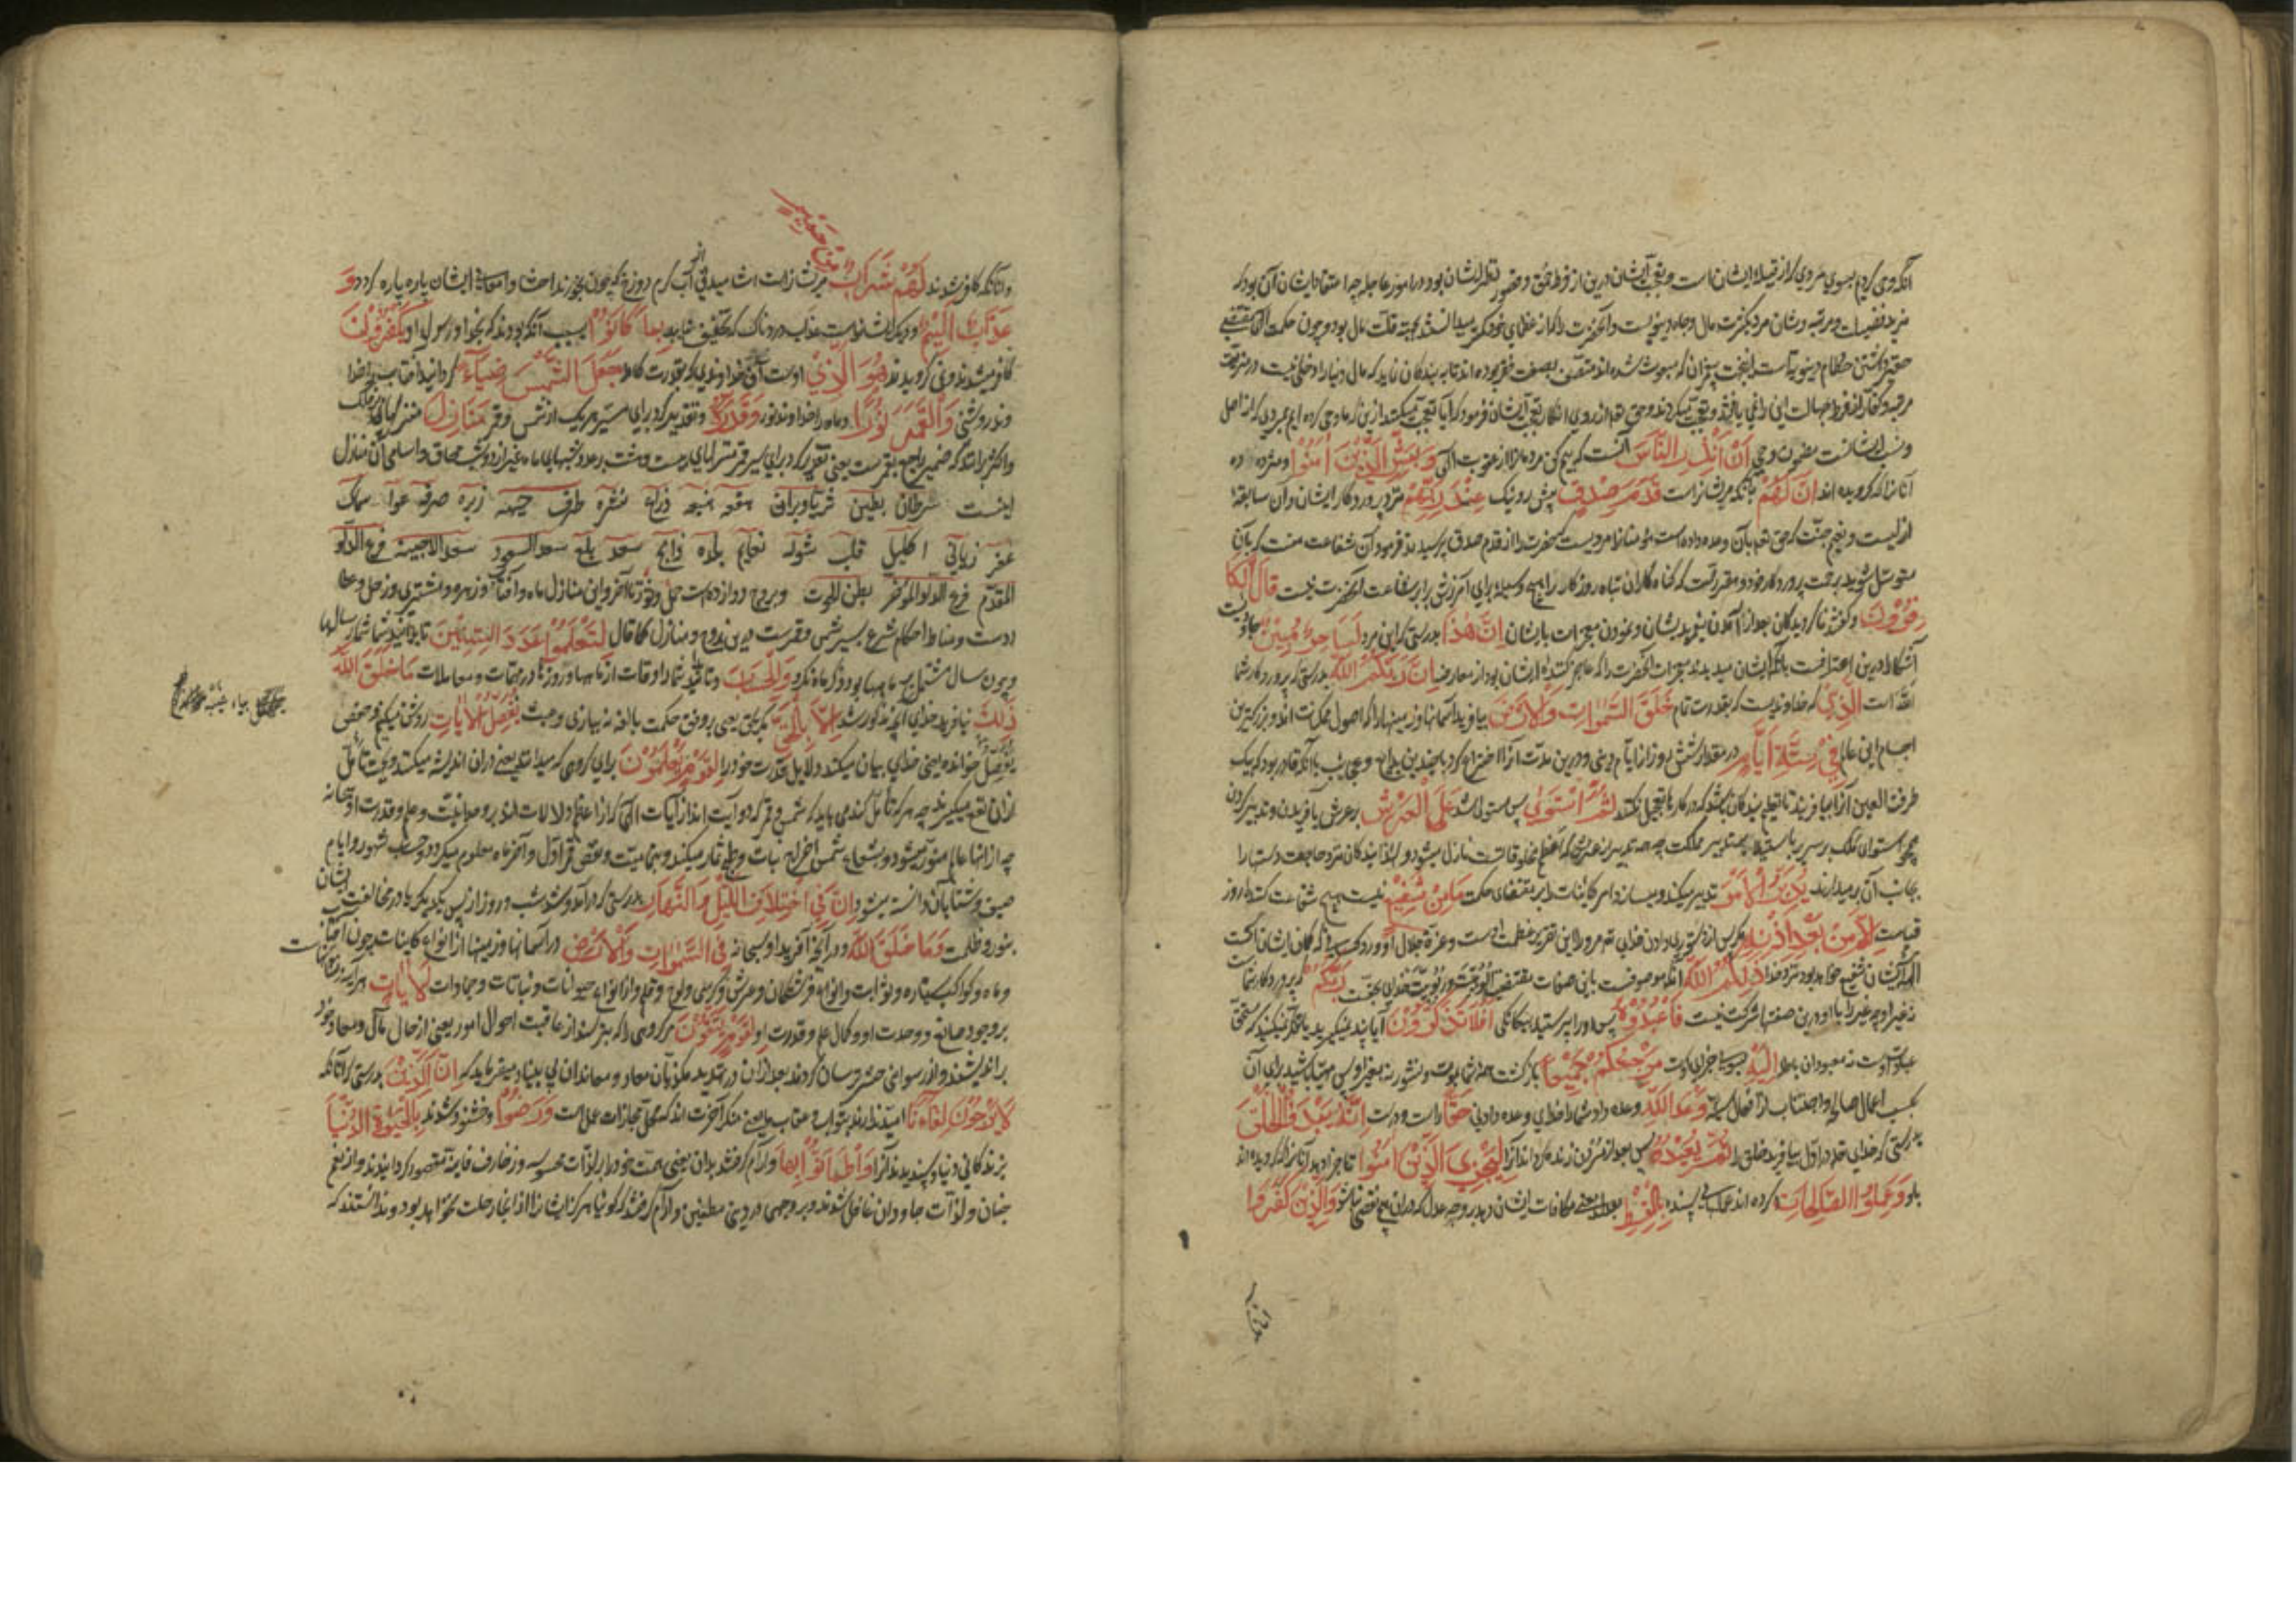 آنکه وحی کردیم بسوی مردی که از قبیلهٔ ایشان است و تعجب ایشان درین از فرط حمق و قصور نظر ایشان بود در امور عاجله چه اعتقاد ایشان آن بود که
مزید فضیلت و مرتبه و شان مرد بکثرت مال و جاه دنیویست و آنحضرت را که از عظمای خود کمتر میدانستند بجهته قلت مال بود و چون حکمت الهی مقتضی
حطام دنیویه است پیغمبران که مبعوث شده اند متصف بصفت فقر بوده اند تا به بندگان نماید که مال دنیا را دخلی نیست در منزلت
مرتبه و کفار از فرط جهالت این را نمی یافتند و تعجب میکردند و حق تعالی از روی انکار تعجب ایشان فرمود که آیا تعجب میکنند ازین که ما وحی کرده ایم بمردی که از اصل
و نسب ایشانست مضمون وحی اَنْ اَنْذِرِ النَّاسَ آنست که بیم کن مردمانرا از عقوبت الهی وَبَشِّرِ الَّذِیْنَ اٰمَنُوْا و مژده ده
آنانرا که گرویده اند اَنَّ لَهُمْ بآنکه مر ایشانراست قَدَمَ صِدْقٍ پیش رو نیک عِنْدَ رَبِّهِمْ نزد پروردگار ایشان و آن سابقهٔ
ازلیست و نعیم جنت که حق تعالی بآن وعده داده است مؤمنانرا مرویست که حضرت را از قدم صدق پرسیدند فرمود آن شفاعت منست که بآن
متوسل شوید برحمت پروردگار خود و مقررست که گناه کاران تباه روزگار را هیچ وسیله برای آمرزش برابر شفاعت آنحضرت نیست قَالَ الْکَا
فِرُوْنَ و گفتند ناگرویدگان بعد از آمدن پیغمبر بدیشان و نمودن معجزات بایشان اِنَّ هٰذَا بدرستی که این مرد لَسَاحِرٌ مُبِیْنٌ جادویست
آشکارا درین اعترافست بآنکه ایشان میدیدند معجزات آنحضرت را که عاجز کننده ایشان بود از معارضه اِنَّ رَبَّکُمُ اللّٰهُ بدرستی که پروردگار شما
الله است الَّذِیْ که خداوندیست که بقدرت تام خَلَقَ السَّمٰوٰتِ وَالْاَرْضَ بیافرید آسمانها و زمینها را که اصول ممکنات اند و بزرگترین
اجسام این عالم فِیْ سِتَّةِ اَیَّامٍ در مقدار شش روز از ایام دنیی و درین مدت آنرا اختراع کرد با چندین بدایع و عجایب با آنکه قادر بود که بیک
طرفة العین آنرا بیافریند تا تعلیم بندگان باشد که در کارها تعجیل نکنند ثُمَّ اسْتَوٰی پس مستولی شد عَلَی الْعَرْشِ بر عرش بآفریدن و تدبیر کردن
همچو استوای ملک بر سریر بجهت تدبیر مملکت چه همه تدبیر از عرش که اعظم مخلوقاتست نازل میشود و لهذا بندگان نزد حاجت دستها را
بجانب آن برمیدارند یُدَبِّرُ الْاَمْرَ تدبیر میکند و میسازد امر کاینات را بر مقتضای حکمت مَا مِنْ شَفِیْعٍ نیست هیچ شفاعت کننده روز
قیامت اِلَّا مِنْ بَعْدِ اِذْنِهٖ مگر پس از دستوری دادن خدای تعالی مر او را این تقریر عظمت اوست و عزة جلال او و رد کسانی که گمان ایشان آنست
که بتان شفیع خواهد بود نزد خدا ذٰلِکُمُ اللّٰهُ آنکه موصوفست باین صفات مقتضی الوهیت و ربوبیت خدای بحقست رَبُّکُمْ که پروردگار شما
نه غیر او چه غیر را با او درین صفتها شرکت نیست فَاعْبُدُوْهُ پس او را پرستید بیگانگی اَفَلَا تَذَکَّرُوْنَ آیا پند نمیگیرید یا تفکر نمیکنید که مستحق
عبادت اوست نه معبودان باطل اِلَیْهِ بسوی جزای اوست مَرْجِعُکُمْ جَمِیْعًا بازگشت همه شما بموت و نشور نه بغیر او پس مهیا باشید برای آن
بکسب اعمال صالحه و اجتناب از افعال سیئه وَعْدَ اللّٰهِ وعده داد شما را خدای وعده دادنی حَقًّا راست و درست اِنَّهٗ یَبْدَؤُا الْخَلْقَ
بدرستی که خدای تعالی در اول بیافریند خلق را ثُمَّ یُعِیْدُهٗ پس بعد از مردن زنده گرداند آنرا لِیَجْزِیَ الَّذِیْنَ اٰمَنُوْا تا جزا دهد آنانرا که گرویده اند
باو وَعَمِلُوا الصّٰلِحٰتِ و کرده اند عملهای پسندیده بِالْقِسْطِ بعدل یعنی مکافات ایشان دهد بر وجه عدل که در آن هیچ نقص نباشد وَالَّذِیْنَ کَفَرُوْا
وآنانکه کافر شدند لَهُمْ شَرَابٌ مر ایشانراست اشامیدنی از آب گرم دوزخ که چون بخورند احشا و امعاء ایشان پاره پاره گردد وَ
مِنْ حَمِیْمٍ
عَذَابٌ اَلِیْمٌ و دیگر ایشانراست عذاب دردناک که تخفیف نیابد بِمَا کَانُوْا بسبب آنکه بودند که بخدا و رسول او یَکْفُرُوْنَ
کافر میشدند و نمی گرویدند هُوَ الَّذِیْ اوست آن خداوندی که بقدرت کامله جَعَلَ الشَّمْسَ ضِیَآءً گردانید آفتاب را خدا
وند روشنی وَالْقَمَرَ نُوْرًا و ماه را خداوند نور وَقَدَّرَهٗ و تقدیر کرد برای مسیر هر یک از شمس و قمر مَنَازِلَ منزلها در فلک
و اکثر برانند که ضمیر راجع بقمرست یعنی تقدیر کرد برای سیر قمر منزلهای بیست و هشت بعدد شبهای ماه غیر از دو شب محاق و اسامی آن منازل
اینست شرطان بطین ثریا دبران هقعه هنعه ذراع نثره طرف جبهه زبره صرفه عوا سماک
غفر زبانی اکلیل قلب شوله نعایم بلده ذابح سعد بلع سعد السعود سعد الاخبیه فرغ الدلو
المقدم فرغ الدلو المؤخر بطن الحوت و بروج دوازده است حمل و ثور تا آخر و این منازل ماه و آفتاب و زهره و مشتری و زحل و عطا
ردست و مناط احکام شرع بسیر شمس و قمرست درین بروج و منازل کما قال لِتَعْلَمُوْا عَدَدَ السِّنِیْنَ تا بدانید شما شمار سالها
و چون سال مشتمل بر ماهها بود ذکر ماه نکرد وَالْحِسَابَ و تا بدانید شمار اوقات از ماهها و روزها در مهمات و معاملات مَا خَلَقَ اللّٰهُ
ذٰلِکَ نیافرید خدای آنچه مذکور شد اِلَّا بِالْحَقِّ مگر بحق یعنی بر وفق حکمت بالغه نه ببازی و عبث نُفَصِّلُ الْاٰیٰتِ روشن میکنیم و حفص
یفصل خوانده یعنی خدای بیان میکند دلایل قدرت خود را لِقَوْمٍ یَعْلَمُوْنَ برای گروهی که میدانند یعنی در آن اندیشه میکنند و بجهت تامل
از آن نفع میگیرند چه هر که تامل کند می یابد که شمس و قمر که دو آیت اند از آیات الهی که از اعظم دلالات اند بر وحدانیت و علم و قدرت او سبحانه
چه از انها عالم منور میشود و بشعاع شمس اخراج نبات و طبخ ثمار میکند و بنقص قمر اول و آخر ماه معلوم میگردد و حساب شهور و ایام
صیف و شتا بآن دانسته میشود اِنَّ فِی اخْتِلَافِ اللَّیْلِ وَالنَّهَارِ بدرستی که در آمد و شد شب و روز از پس یکدیگر یا در مخالفت ایشان
بنور و ظلمت وَمَا خَلَقَ اللّٰهُ و در آنچه آفرید او سبحانه فِی السَّمٰوٰتِ وَالْاَرْضِ در آسمانها و زمینها از انواع کاینات چون آفتاب
و ماه و کواکب سیاره و ثوابت و انواع فرشتگان و عرش و کرسی و لوح و قلم و از انواع حیوانات و نباتات و جمادات لَاٰیٰتٍ هر آینه نشانهاست
بر وجود صانع و وحدت او و کمال علم و قدرت او لِقَوْمٍ یَتَّقُوْنَ مر گروهی را که بترسند از عاقبت احوال امور یعنی از حال مآل و معاد خود
براندیشند و از رسوایی حشر ترسان گردند بعد از آن در تهدید مکذبان معاد و معاندان بی بنیاد میفرماید که اِنَّ الَّذِیْنَ بدرستی که آنانکه
لَا یَرْجُوْنَ لِقَآءَنَا امید ندارند بثواب و عقاب ما یعنی منکر آخرت اند که محل مجازات عمل است وَرَضُوْا و خشنود شدند بِالْحَیٰوةِ الدُّنْیَا
بزندگانی دنیا و پسندیدند آنرا وَاطْمَاَنُّوْا بِهَا و آرام گرفتند بدان یعنی همت خود را بر لذات محسوسه و زخارف فانیه مقصور گردانیدند و از نعیم
جنان و لذات جاودان غافل شدند و بر وجهی در دنیی مطمئن و آرام گرفتند که گوئیا هرگز ایشان را از اینجا رحلت نخواهد بود و ندانستند که